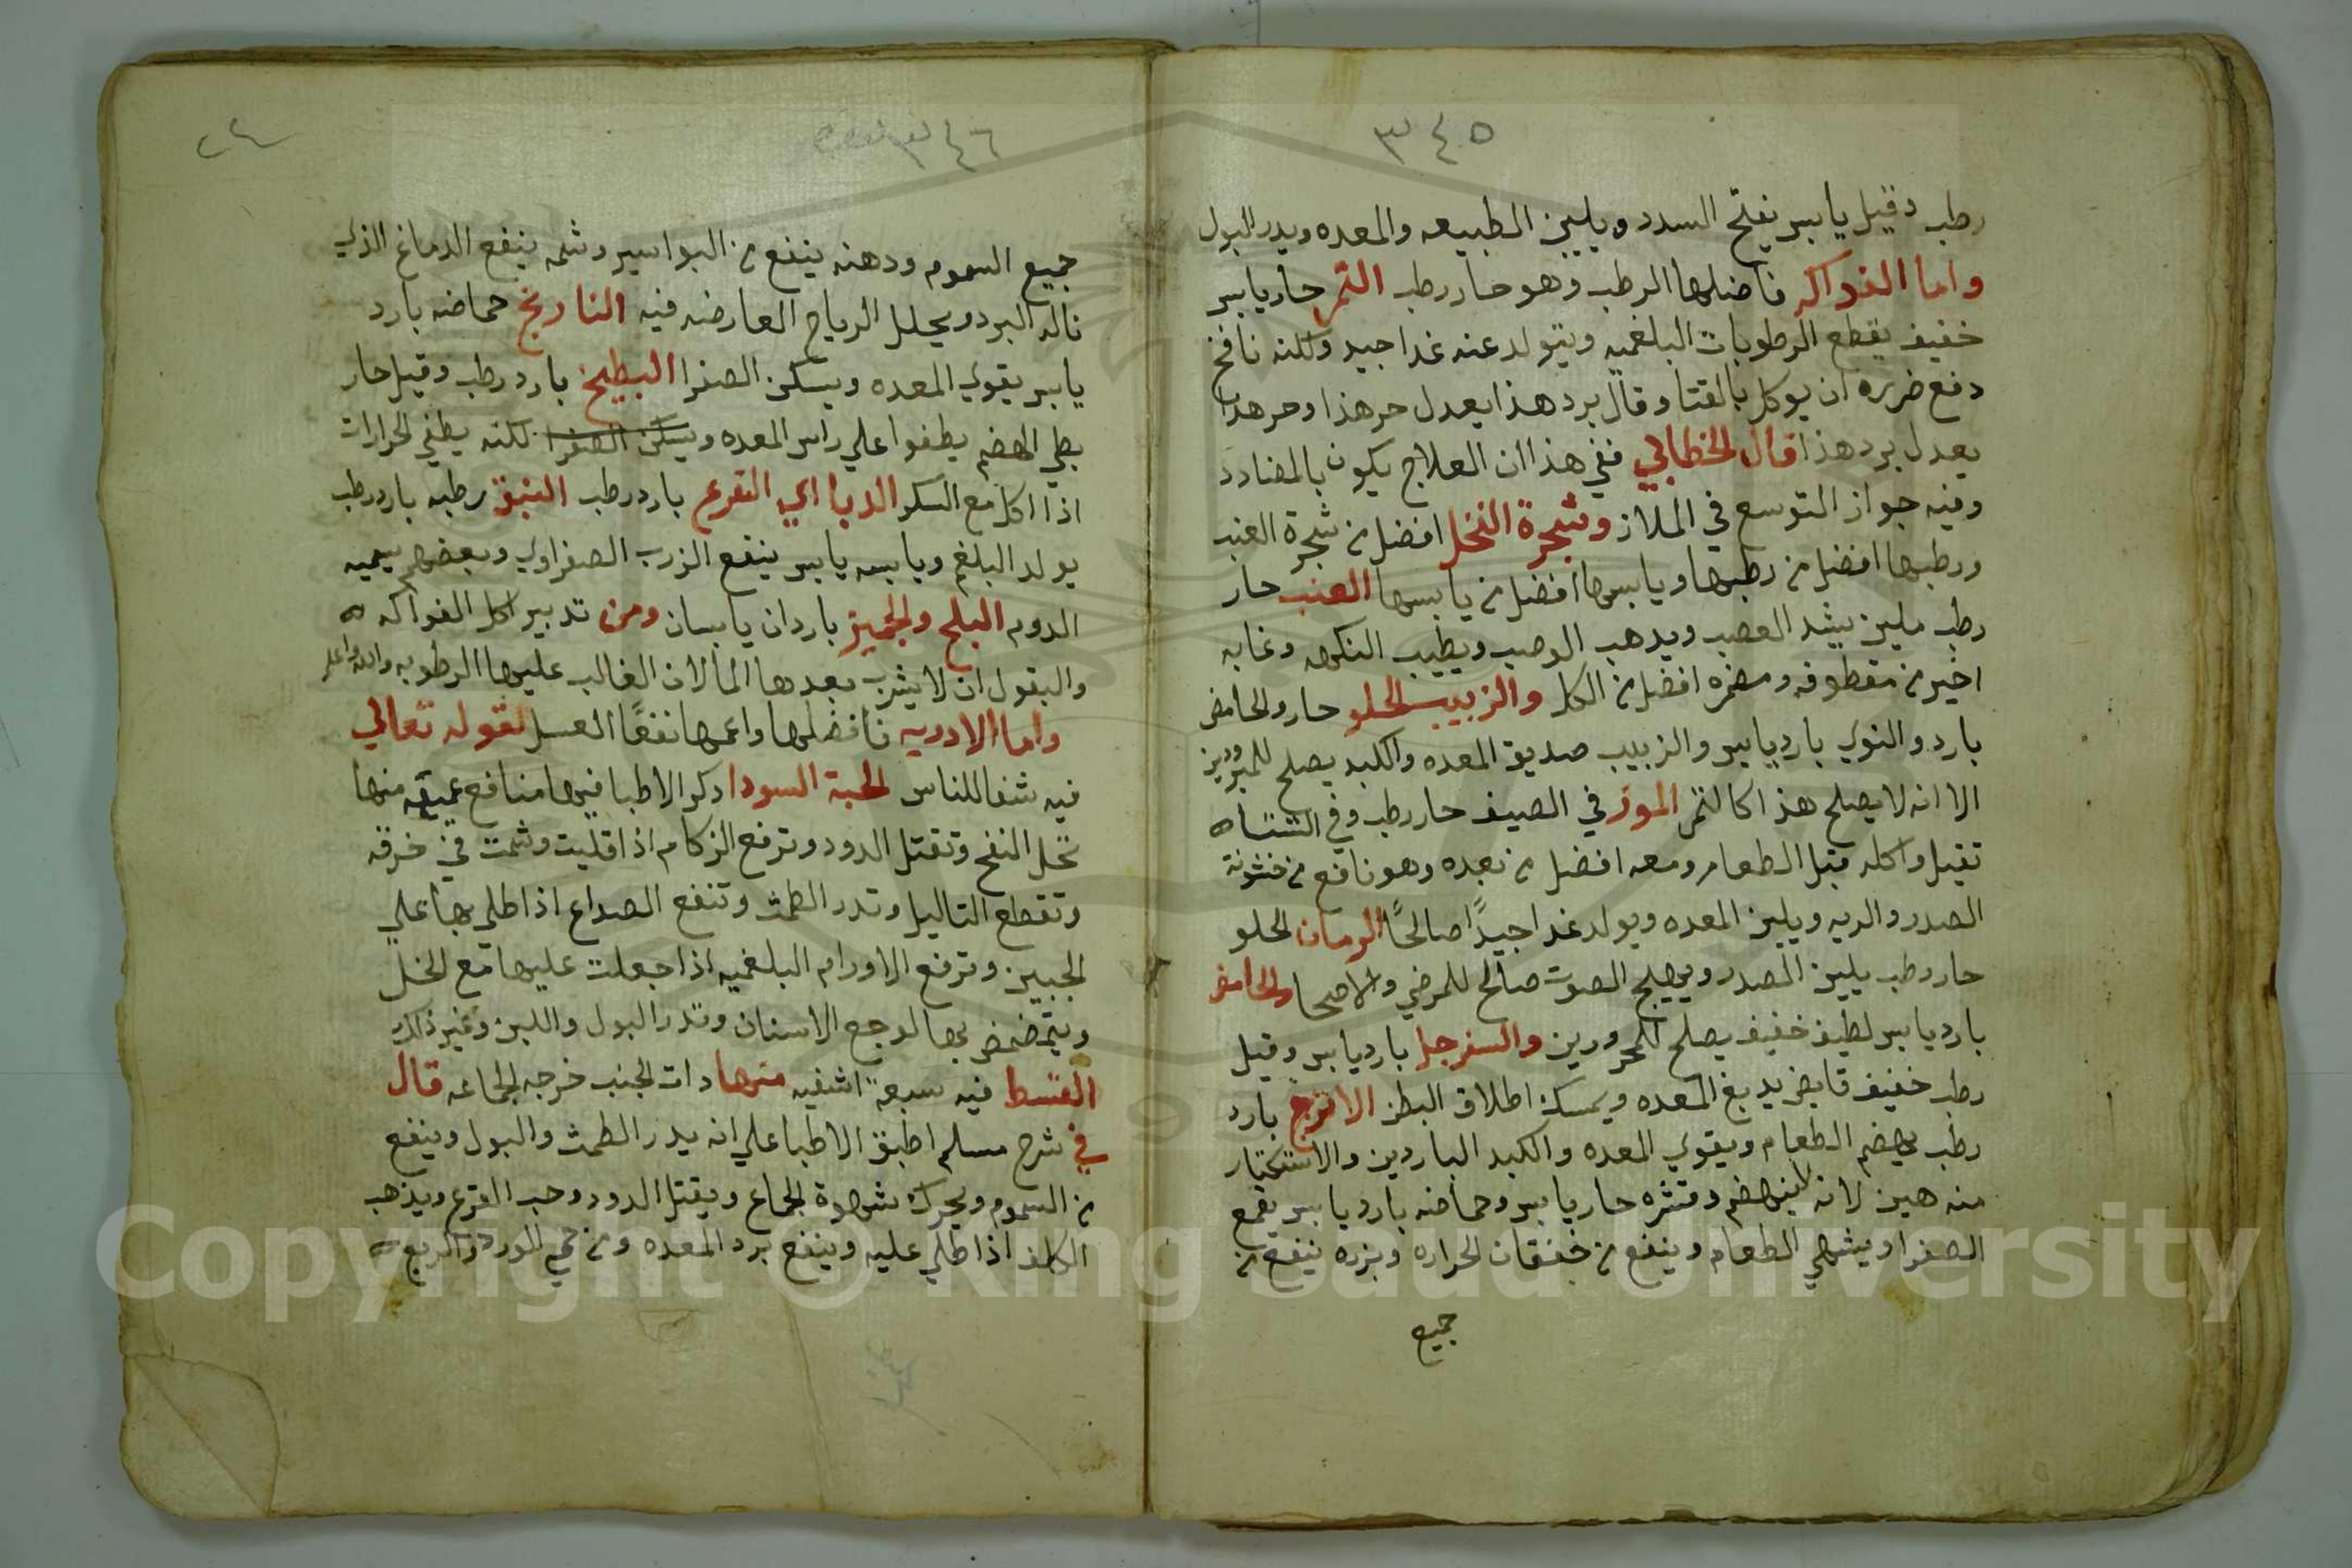 ٣٤٥
رطب وقيل يابس يفتح السدد ويلين الطبيعه والمعده ويدر البول
واما الفواكه فافضلها الرطب وهو حار رطب التمر حار يابس
خفيف يقطع الرطوبات البلغميه ويتولد عنه غدا جيد ولكنه نافخ
دفع ضرره ان يوكل بالقتا وقال برد هذا يعدل حر هذا وحر هذا
يعدل برد هذا قال الخطابي ففي هذا ان العلاج يكون بالمضادد
وفيه جواز التوسع في الملاز وشجرة النخل افضل من شجرة العنب
ورطبها افضل من رطبها ويابسها افضل من يابسها العنب حار
رطب ملين يشد العصب ويدهب الوصب ويطيب النكهه وغابه
اخير من مقطوفه ومضمره افضل من الكل والزبيب الحلو حار والحامض
بارد والنوي بارد يابس والزبيب صديق المعده والكبد يصلح للمبرودين
الا انه لا يصلح هذا كالتمر الموز في الصيف حار رطب وفي الشتاه
تقيل واكله قبل الطعام ومعه افضل من بعده وهو نافع من خشونة
الصدر والريه ويلين المعده ويولد غدا جيدًا صالحًا الرمان الحلو
حار رطب يلين الصدر ويصلح الصوت صالح للمرضي والاصحا والحامض
بارد يابس لطيف خفيف يصلح للمحرورين والسفرجل بارد يابس وقيل
رطب خفيف قابض يدبغ المعده ويمسك اطلاق البطن الاترج بارد
رطب يهضم الطعام ويقوي المعده والكبد الباردين والاستكتار
منه هين لانه لا ينهضم وقشره حار يابس وحماضه بارد يابس يقمع
الصفرا ويشهي الطعام وينفع من خفقان الحراره وبزره ينفع من
جميع
٣٤٦
جميع السموم ودهنه ينفع من البواسير وشمه ينفع الدماغ الذي
ناله البرد ويحلل الرياح العارضه فيه النارنج حماضه بارد
يابس يقوي المعده ويسكن الصفرا البطيخ بارد رطب وقيل حار
بطي الهضم يطفوا علي راس المعده ويسكن الصفرا لكنه يطفي الحرارات
اذا اكل مع السكر الدبا اي القرع بارد رطب النبق رطبه بارد رطب
يولد البلغم ويابسه يابس ينفع الزرب الصفراوي وبعضهم يسميه
الدوم البلح والجميز باردان يابسان ومن تدبير اكل الفواكه
والبقول ان لا يشرب بعدها الما لان الغالب عليها الرطوبه والله اعلم
واما الادويه فافضلها واعمها نفعًا العسل لقوله تعالي
فيه شفا للناس الحبة السودا دكر الاطبا فيها منافع عميقه منها
تحل النفخ وتقتل الدود وترفع الزكام اذا قليت وشمت في خرقه
وتقطع التاليل وتدر الطمث وتنفع الصداع اذا طلي بها علي
الجبين وترفع الاورام البلغميه اذا جعلت عليها مع الخل
ويتمضمض بها لوجع الاسنان وتدر البول واللبن وغير ذلك
القسط فيه سبعة اشفيه منها دات الجنب خرجه الجاعه قال
في شرح مسلم اطبق الاطبا علي انه يدر الطمث والبول وينفع
من السموم ويحرك شهوة الجماع ويقتل الدود وحب القرع ويذهب
الكلف اذا طلي عليه وينفع برد المعده ومن حمي الورد والربع
Copyright © King Saud University